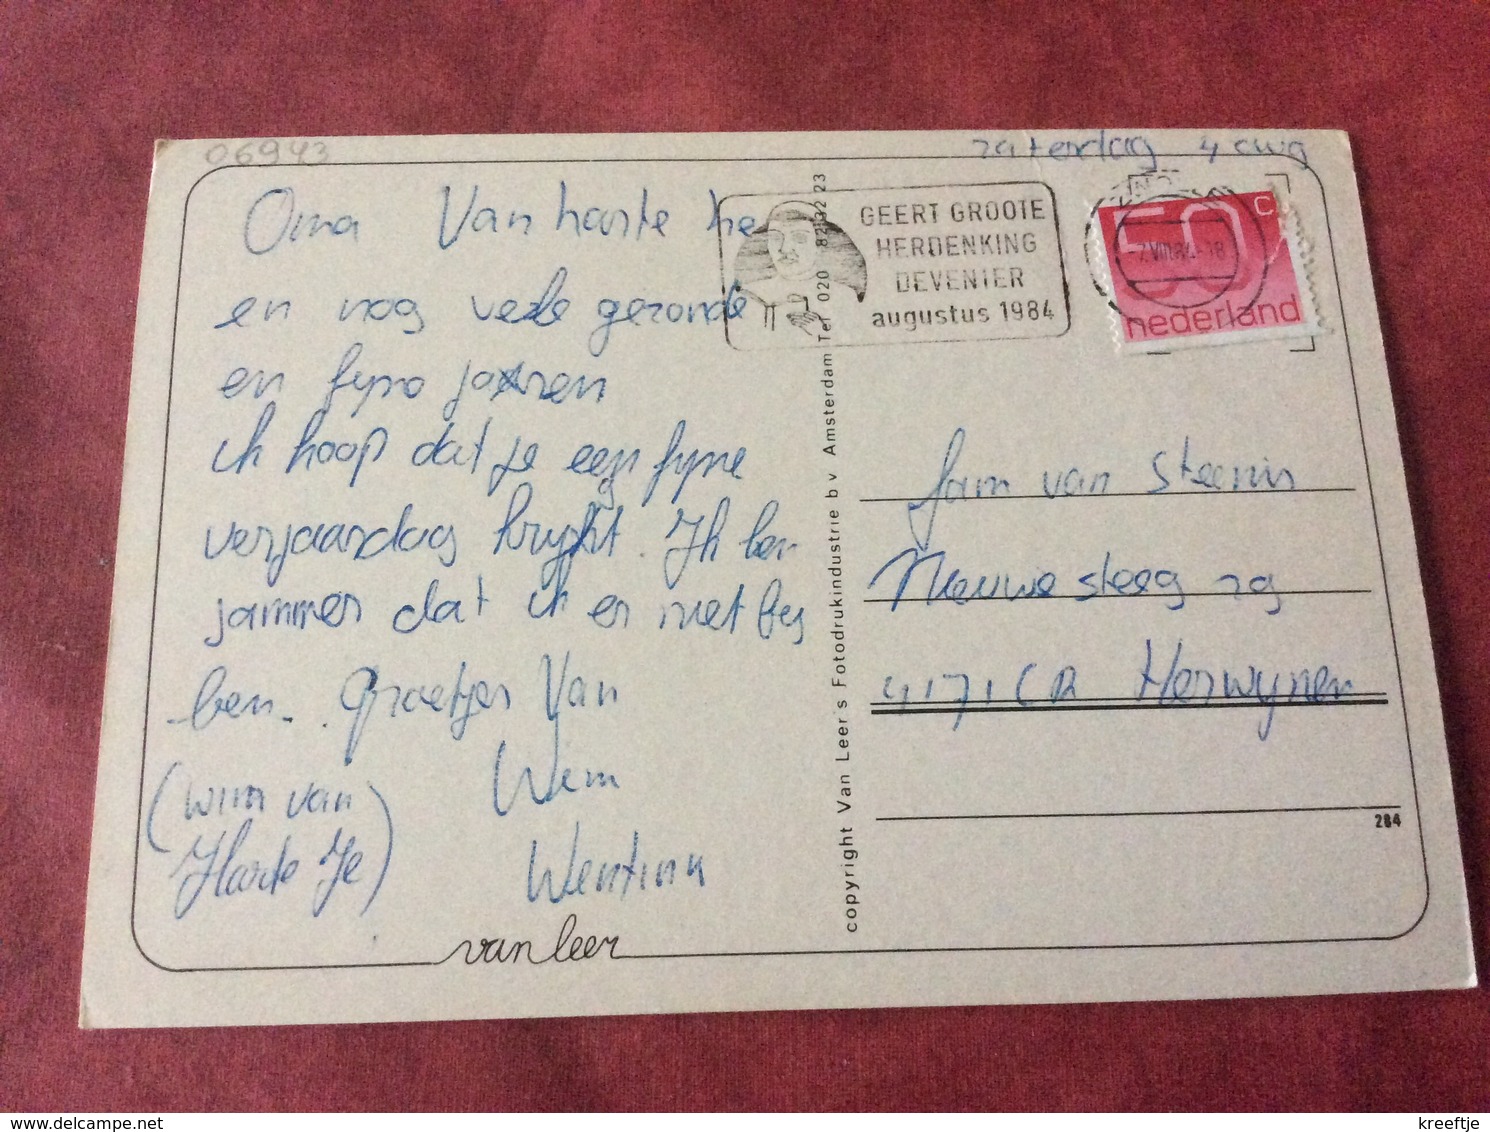 06943
zaterdag 4 aug
Oma Van harte he
en nog vele gezonde
en fyne jaren
ik hoop dat je een fyne
verjaardag krygt. Ik ben
jammer dat ik er niet by
ben. Groetjes Van
Wim
Wentink
(Wim van
Harte Je)
van leer
GEERT GROOTE
HERDENKING
DEVENTER
augustus 1984
-7.VIII.84-18
50c
nederland
copyright Van Leer's Fotodrukindustrie b v Amsterdam Tel 020 823223
Jam van Steenis
Nieuwe steeg 29
4171 CR Herwynen
284
kreeftje